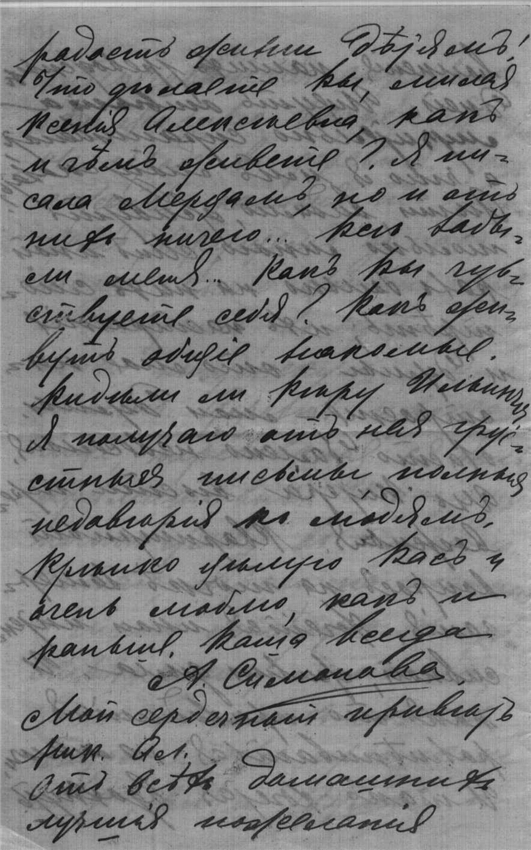 радость жизни дѣтямъ!
Что дѣлаете Вы, милая
Ксенія Алексѣевна, какъ
и чѣмъ живете? Я пи-
сала Мердамъ, но и отъ
нихъ ничего... Всѣ забы-
ли меня... Какъ Вы чув-
ствуете себя? Какъ жи-
вутъ общіе знакомые.
Видѣли ли Киру Ильинич.
Я получаю отъ нея гру-
стныя письмы, полныя
недовѣрія къ людямъ.
Крѣпко цѣлую Васъ и
очень люблю, какъ и
раньше. Ваша всегда
А Симонова.
Мой сердечный привѣтъ
Ник. Ал.
Отъ всѣхъ домашнихъ
лучшія пожеланія